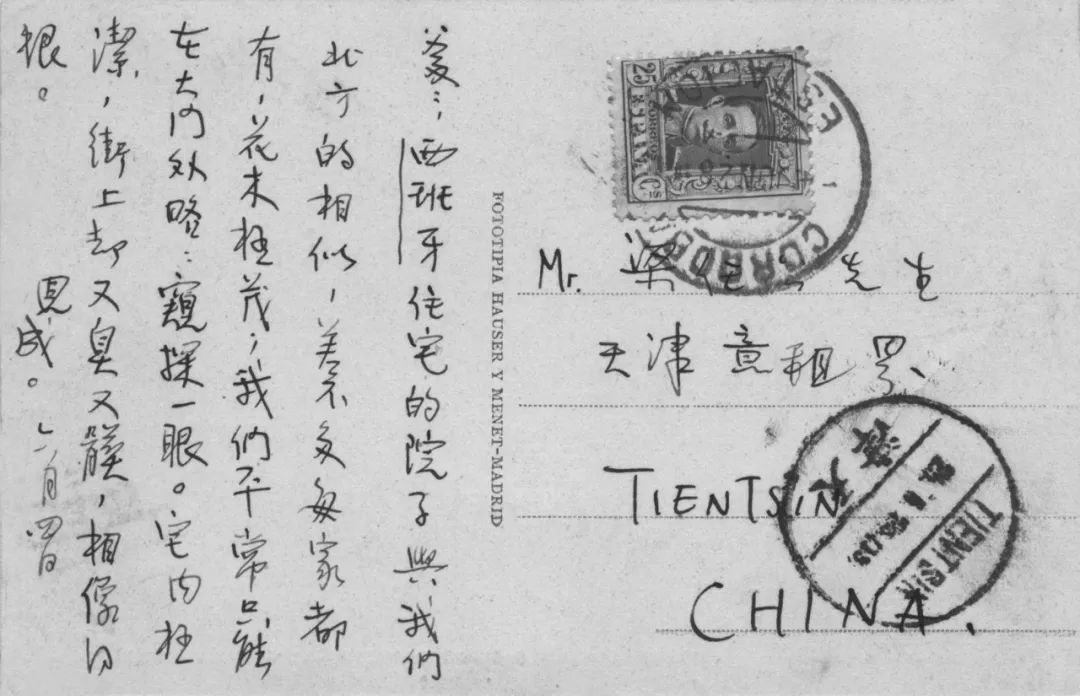 爹〻西班牙住宅的院子與我們
北方的相似，差不多每家都
有，花木极茂，我們平常只能
在大門外略〻窺探一眼。宅内极
潔，街上却又臭又髒，相像得
很。
思成。六月四日
FOTOTIPIA HAUSER Y MENET-MADRID
25
CORREOS
ESPAÑA
Mr. 梁任 先生
天津意租界
TIENTSIN
CHINA.
天津
TIENTSIN